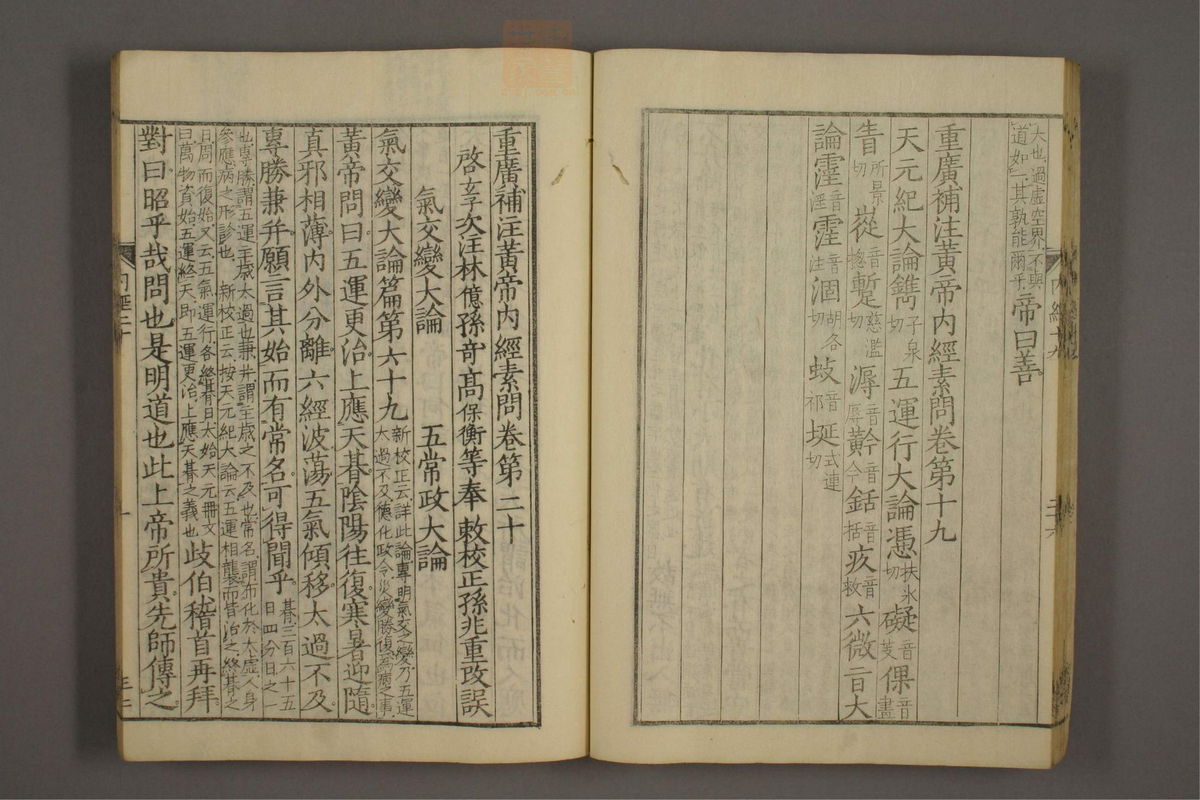 大也過虛空界不與
道如一其孰能爾乎帝曰善
重廣補注黃帝內經素問卷第十九
天元紀大論鐫子泉切五運行大論憑扶氷切礙音㝵倮音
眚所景切摐音揔蹔慈濫切溽音辱黅音今銛音括疚音救六微旨大
論霔音霔音注涸胡各切蚑音祁埏式連切
重廣補注黃帝內經素問卷第二十
啓玄子次注林億孫奇高保衡等奉敕校正孫兆重改誤
氣交變大論 五常政大論
氣交變大論篇第六十九新校正云詳此論專明氣交之變乃五運
太過不及德化政令災變勝復爲病之事
黃帝問曰五運更治上應天朞陰陽往復寒暑迎隨
真邪相薄內外分離六經波蕩五氣傾移太過不及
專勝兼并願言其始而有常名可得聞乎朞三百六十五
日四分日之一
也專勝謂五運主歲太過也兼并謂主歲之不及也常名謂布化於太虛人身
參應病之形診也 新校正云按天元紀大論云五運相襲而皆治之終朞之
日周而復始又云五氣運行各終朞日太始天元冊文
曰萬物資始五運終天即五運更治上應天朞之義也歧伯稽首再拜
對曰昭乎哉問也是明道也此上帝所貴先師傳之